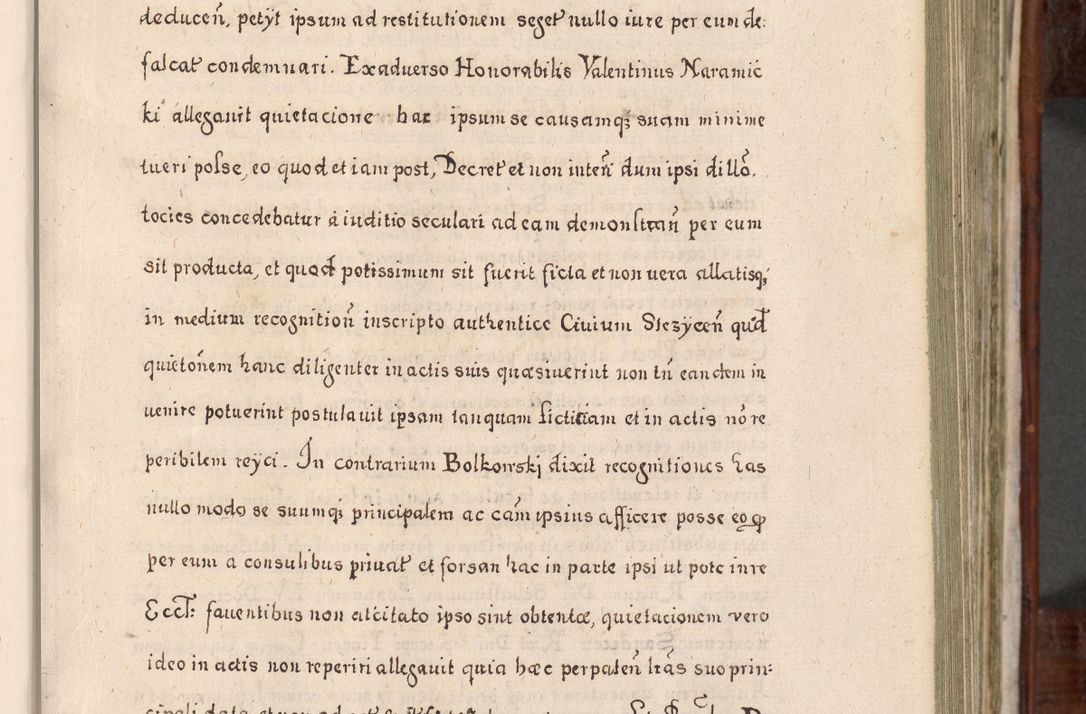 deduceń, petÿt ipsum ad restitutionem seget̃ nullo iure per eum de:
falcat̃ condemnari. Exaduerso Honorabilis Valentinus Naramic
ki allegauit quietacione hac ipsum se causamq; suam minime
tueri posse, eo quod et iam post, Decret̃ et non inteñ dum ipsi dillõ.
tocies concedebatur à iuditio seculari ad eam demonstrañ per eum
sit producta, et quod potissimum sit fuerit ficta et non uera allatisq;
in medium recognitioñ inscripto authentice Ciuium Stezyceñ quid
quietoñem hanc diligenter in actis suis quæsiuerint non tñ eandem in
uenire potuerint postulauit ipsam tanquam fictitiam et in actis nõ re
peribilem reyci. In contrarium Bolkowskj dixit recognitiones has
nullo modo se suumq; principalem ac cãm ipsius afficere posse eo q̃
per eum a consulibus priuat̃ et forsan hac in parte ipsi ut pote inre
Eccl̃: fauentibus non atcitato ipso sint obtentæ, quietacionem vero
ideo in actis non reperiri allegauit quia hæc perpateñ lrãs suo prin: